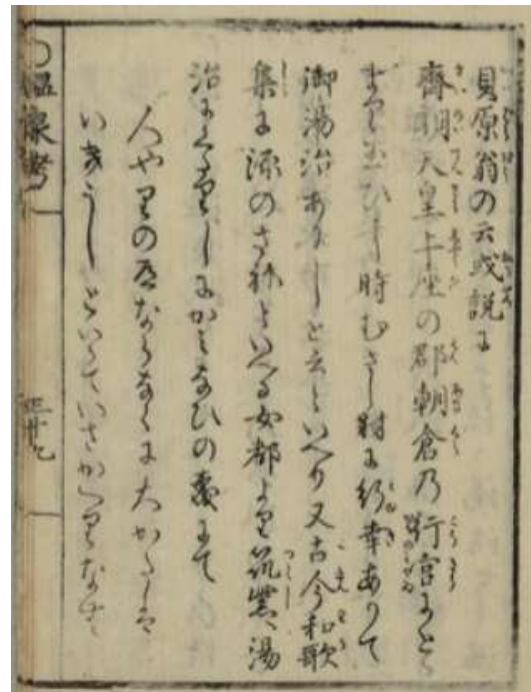 貝原翁の云或説に
齊明天皇上座の郡朝倉乃行宮にとゝ
まり玉ひし時むさし村に行幸ありて
御湯治ありしと云といへり又古今和歌
集に源のさねといへる女都より筑紫へ湯
治にくたりしにかみなひの森にて
人やりの道ならなくに大かたは
いきうしといひていさかへりなむ
〇温泉考
廿九